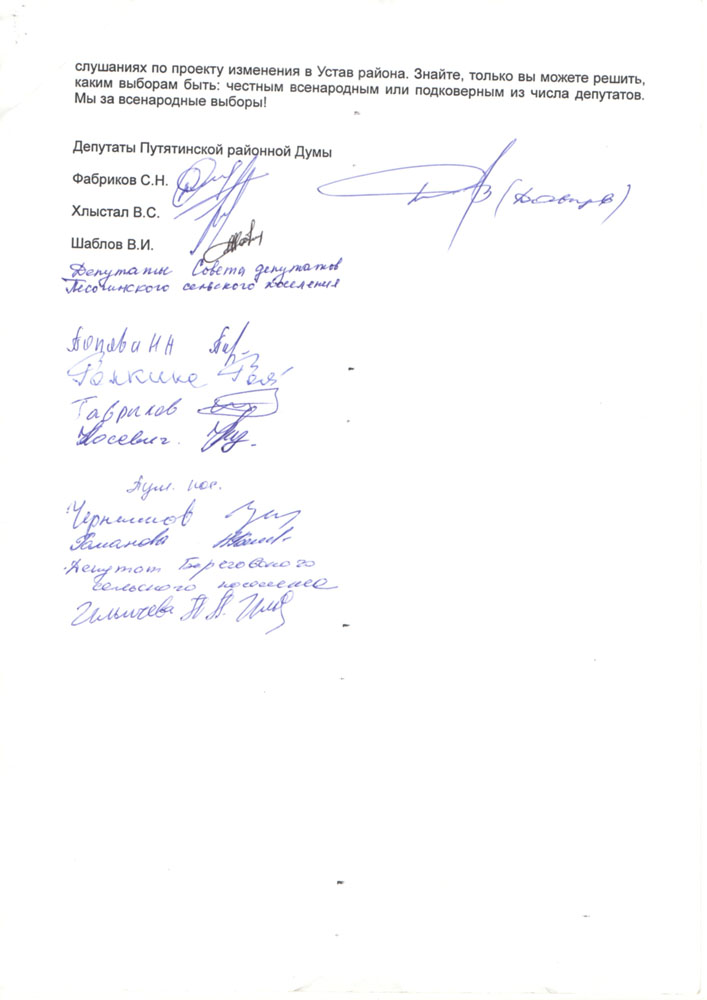 слушаниях по проекту изменения в Устав района. Знайте, только вы можете решить,
каким выборам быть: честным всенародным или подковерным из числа депутатов.
Мы за всенародные выборы!
Депутаты Путятинской районной Думы
Фабриков С.Н.
Хлыстал В.С.
Шаблов В.И.
Депутаты Совета депутатов
Песочинского сельского поселения
Попова Н Н
Гаврилов
Носевич.
Пун. пос.
Романова
Депутат Береговского
сельского поселения
Ильичева